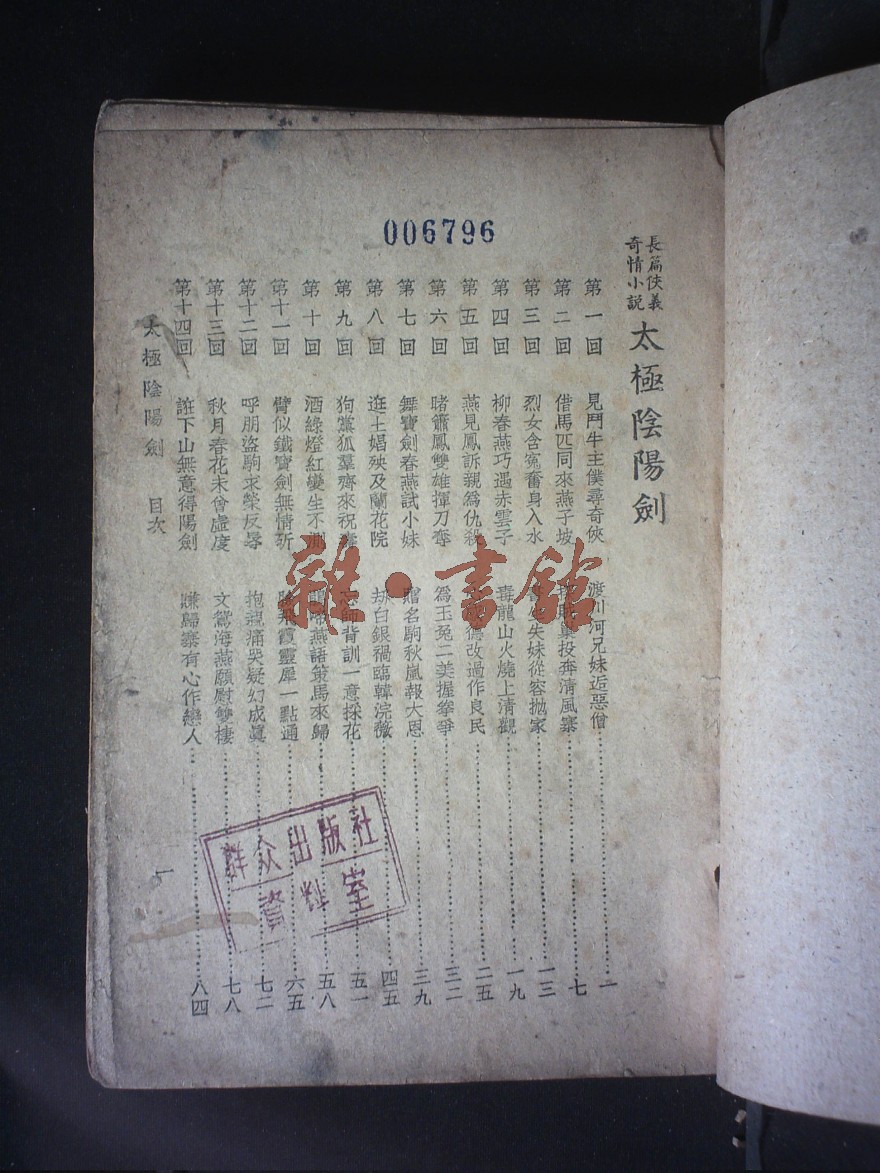 006796
長篇俠義
奇情小說
太極陰陽劍
第一回 見鬥牛主僕尋奇俠 渡川河兄妹逅惡僧 一
第二回 借馬匹同來燕子坡 投奔清風寨 七
第三回 烈女含寃奮身入水 失妹從容拋家 一三
第四回 柳春燕巧遇赤雲子 毒龍山火燒上清觀 一九
第五回 燕見鳳訴親爲仇殺 改過作良民 二五
第六回 賭簫鳳雙雄揮刀奪 爲玉兔二美握拳爭 三二
第七回 舞寶劍春燕試小妹 贈名駒秋嵐報大恩 三九
第八回 逛土娼殃及蘭花院 刼白銀禍臨韓浣薇 四五
第九回 狗黨狐羣齊來祝 師背訓一意採花 五一
第十回 酒綠燈紅變生不測 燕語策馬來歸 五八
第十一回 臂似鐵寶劍無情斫 霞靈犀一點通 六五
第十二回 呼朋盜駒求榮反辱 抱親痛哭疑幻成眞 七二
第十三回 秋月春花未曾虛度 文鴛海燕願慰雙棲 七八
第十四回 誑下山無意得陽劍 賺歸寨有心作戀人 八四
太極陰陽劍 目次
一
群众出版社
資料室
雜·書館